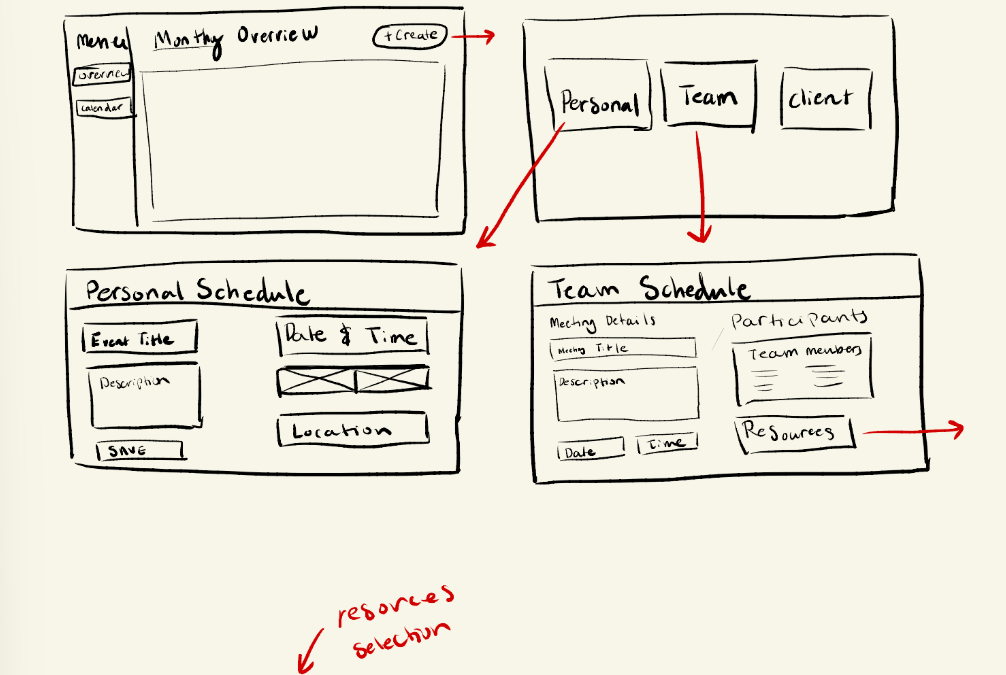 Menu
Monthy Overview
+Create
overview
calendar
Personal
Team
client
Personal Schedule
Event Title
Description
SAVE
Date & Time
Location
Team Schedule
Meeting Details
Meeting Title
Description
Date
Time
Participants
Team members
Resources
resorces
selection